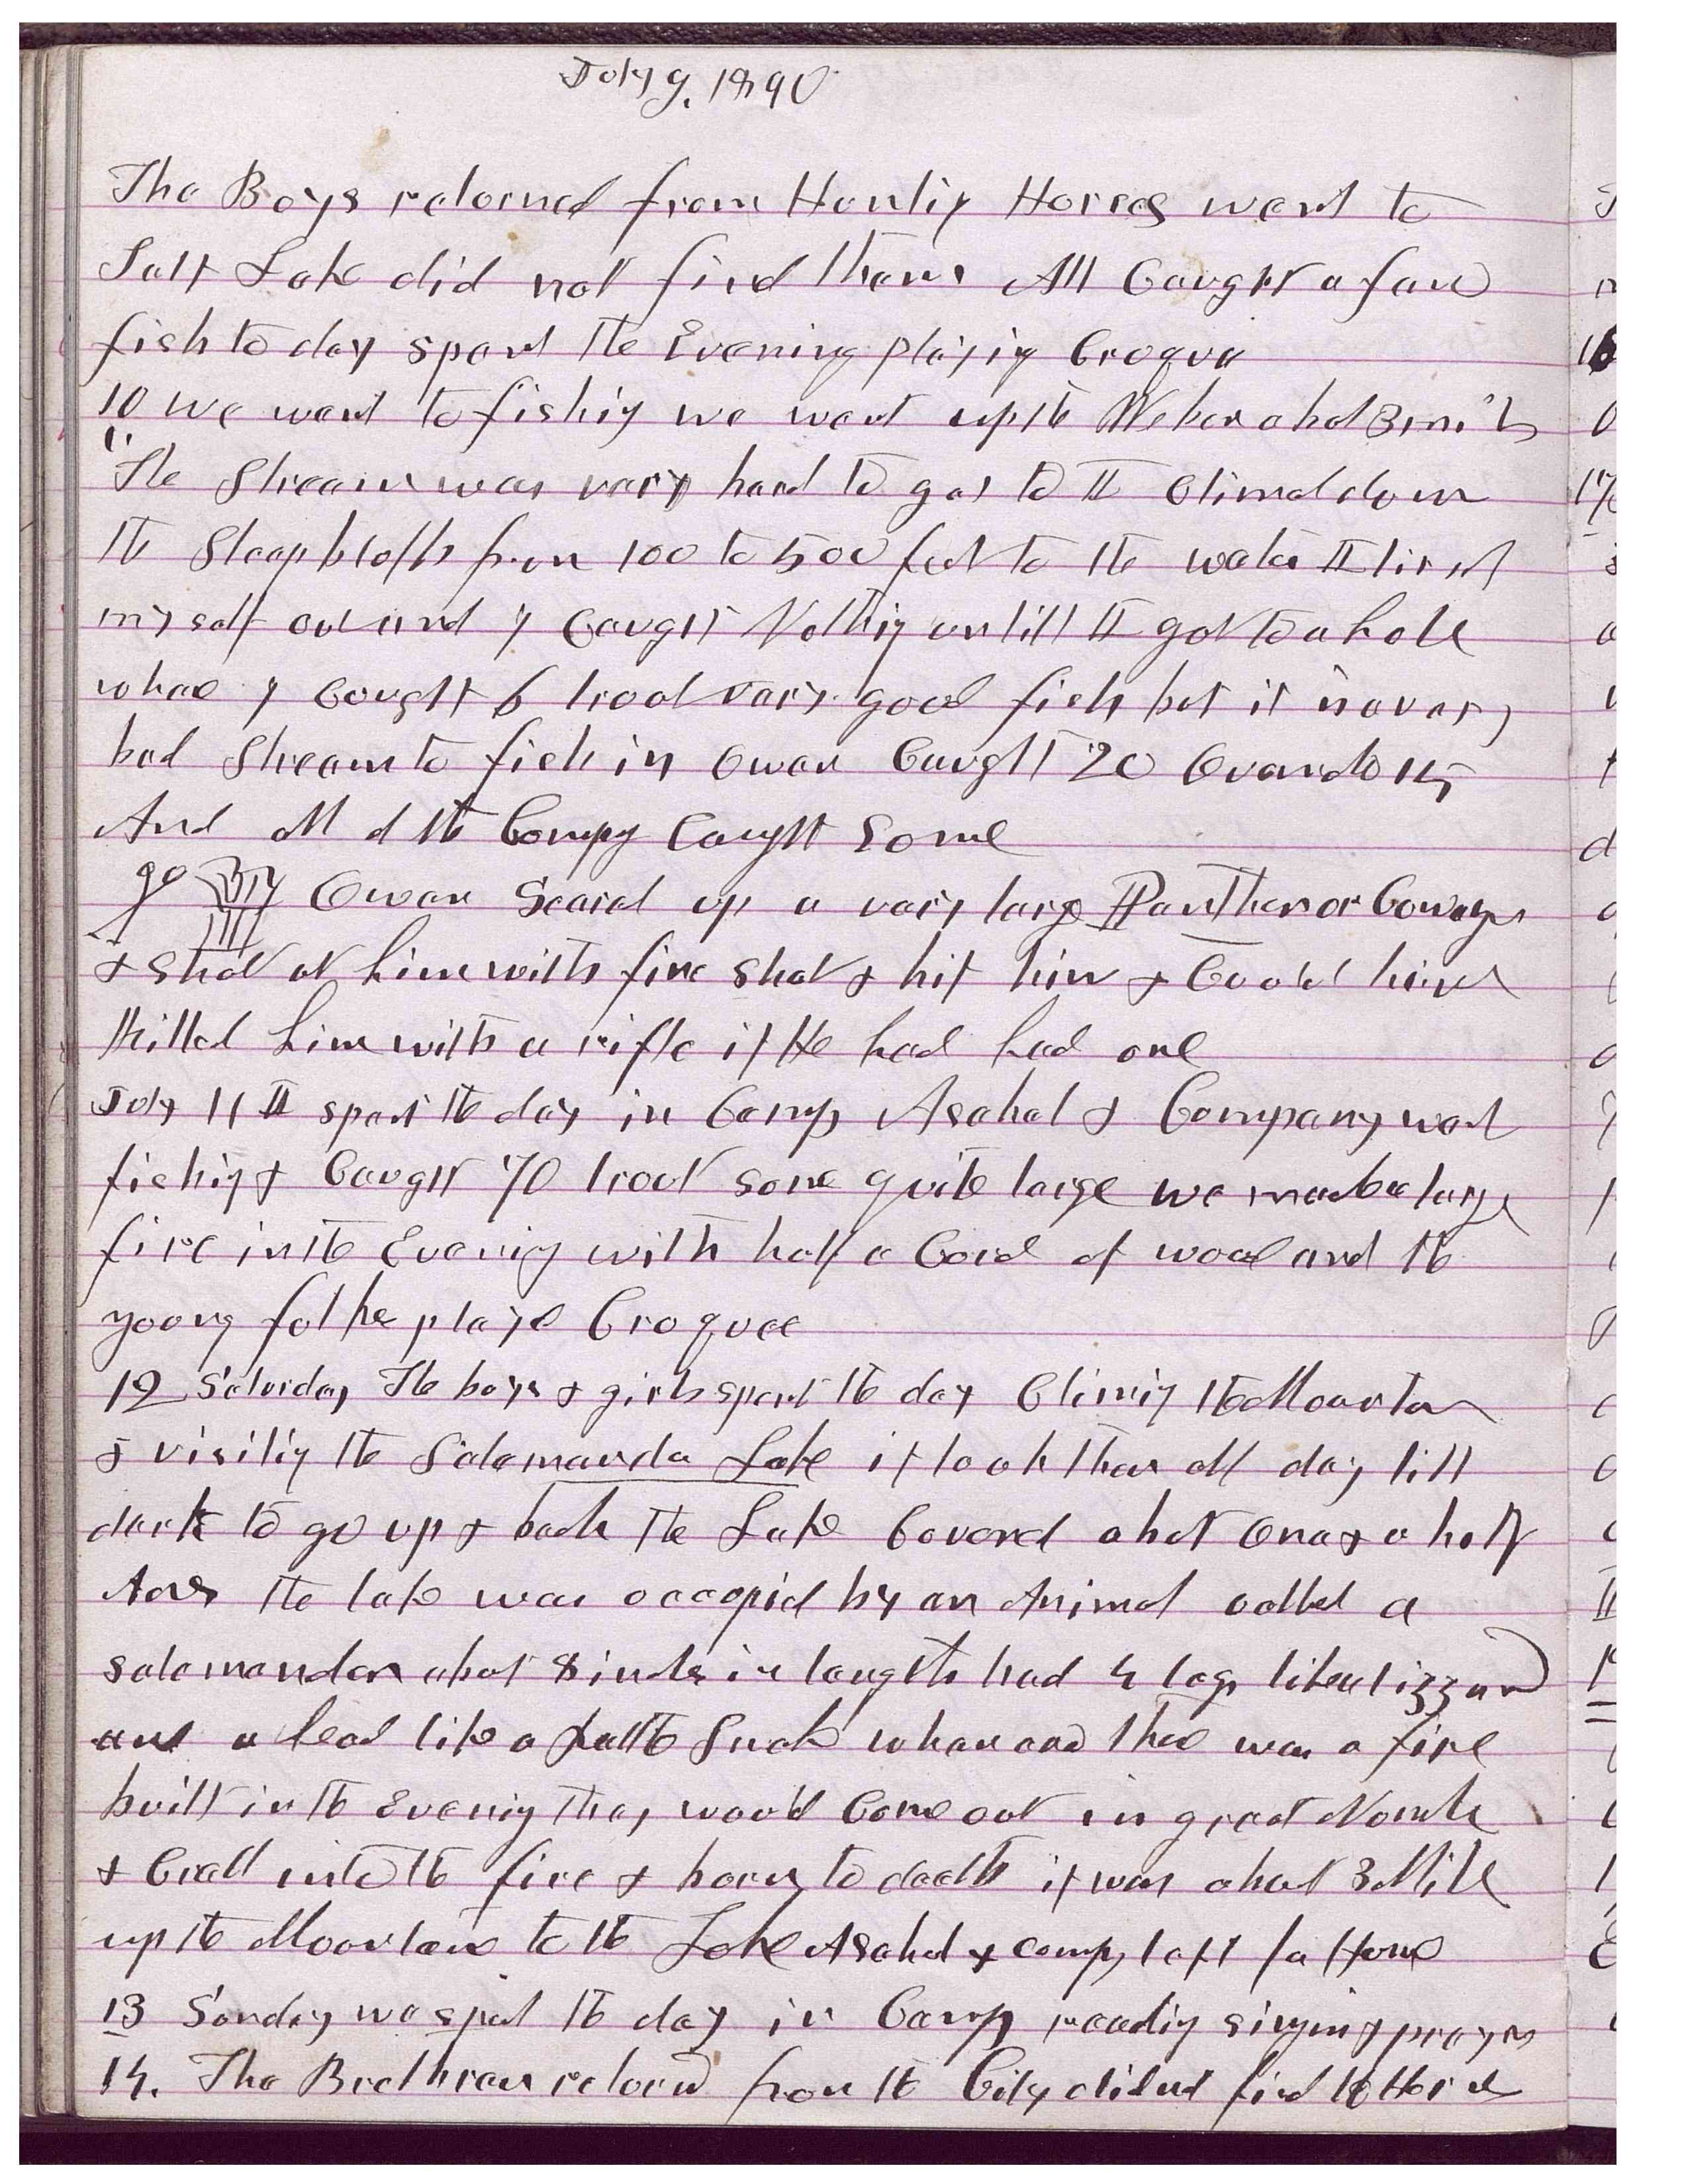 July 9, 1890
The Boys retorned from Hunting Horses went to
Salt Lake did not find them All Caught a few
fish to day spent the Evening playing Croquee
10 we went to fishing we went up the Weber about 3 mils
The Stream was very hard to get to I Climed down
the Steep bloffs from 100 to 500 feet to the water I tired
myself out and I Caught Nothing untill I got to a hole
whare I Caught 6 trout very good fish but it is a very
bad Stream to fish in Owen Caught 20 Ovando 15
And all of the Compy Caught Some
Owen Scared up a very large Panther or Couger
& Shot at him with fine shot & hit him & Could have
killed him with a rifle if He had had one
July 11 I spent the day in Camp Asahel & Company went
fishing & Caught 70 trout some quite large we made a large
fire in the Evening with half a Cord of wood and the
young folks played Croquee
12 Saturday The boys & girls spent the day Climing the Mountain
& visiting the Salamander Lake it took them all day till
dark to go up & back The Lake Covered about One & a half
Acres the lake was occopied by an Animal called a
salamander about 8 inches in length had 4 legs like a lizzard
and a head like a Rattle Snake whenever thare was a fire
built in the Evening they would Come out in great Number
& Crall into the fire & burn to death it was about 3 Mile
up the Mountain to the Lake Asahel & compy left for Home
13 Sunday we spent the day in Camp reading singing & prayers
14. The Brethren retornd from the City did not find the Horses